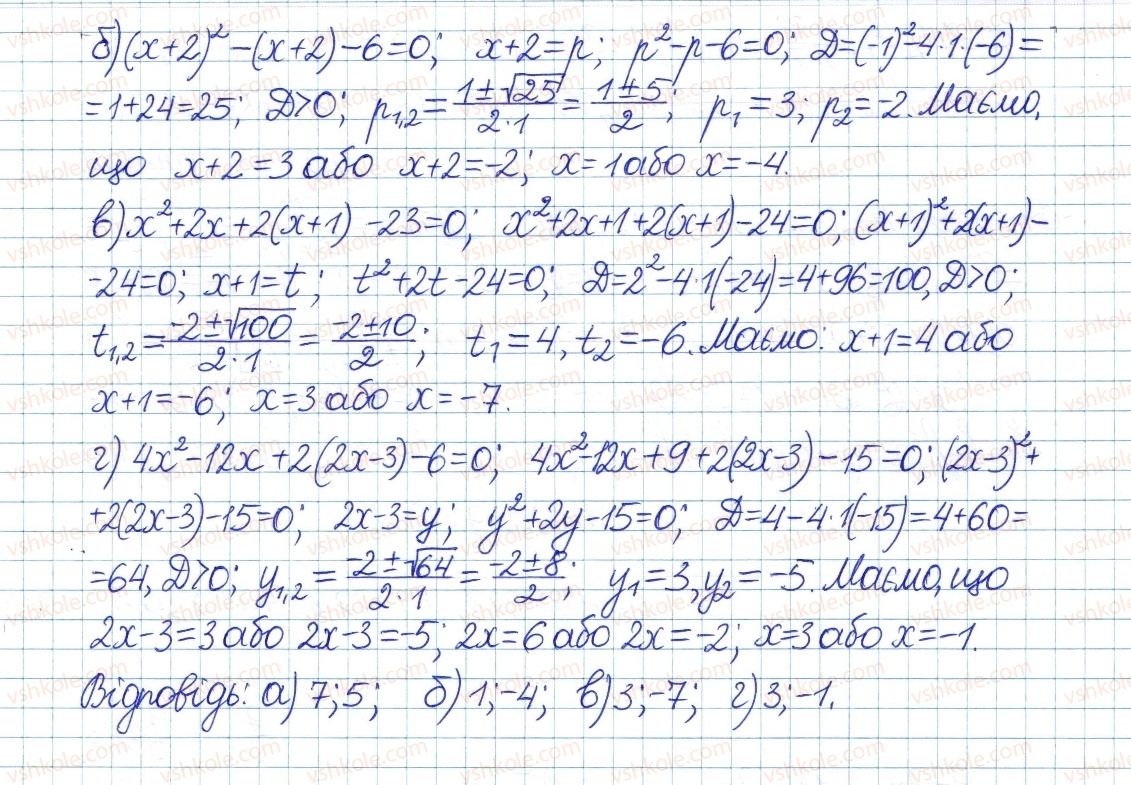 б) (x+2)² - (x+2) - 6 = 0; x+2=p; p²-p-6=0; Д=(-1)²-4·1·(-6)=
=1+24=25; Д>0; p₁,₂ = (1±√25)/(2·1) = (1±5)/2; p₁=3; p₂=-2. Маємо,
що x+2=3 або x+2=-2; x=1 або x=-4.
в) x²+2x+2(x+1)-23=0; x²+2x+1+2(x+1)-24=0; (x+1)²+2(x+1)-
-24=0; x+1=t; t²+2t-24=0; Д=2²-4·1(-24)=4+96=100, Д>0;
t₁,₂ = (-2±√100)/(2·1) = (-2±10)/2; t₁=4, t₂=-6. Маємо: x+1=4 або
x+1=-6; x=3 або x=-7.
г) 4x²-12x+2(2x-3)-6=0; 4x²-12x+9+2(2x-3)-15=0; (2x-3)²+
+2(2x-3)-15=0; 2x-3=y; y²+2y-15=0; Д=4-4·1(-15)=4+60=
=64, Д>0; y₁,₂ = (-2±√64)/(2·1) = (-2±8)/2; y₁=3, y₂=-5. Маємо, що
2x-3=3 або 2x-3=-5; 2x=6 або 2x=-2; x=3 або x=-1.
Відповідь: а) 7; 5; б) 1; -4; в) 3; -7; г) 3; -1.